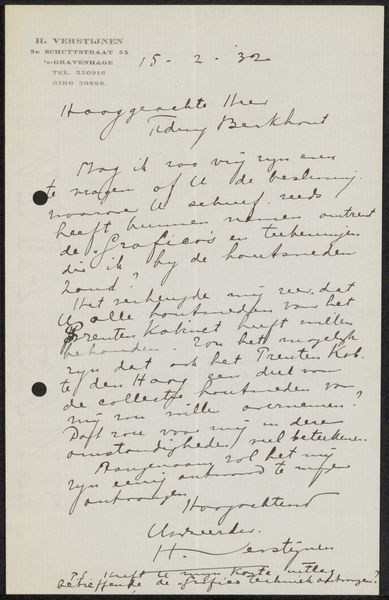 H. VERSTIJNEN
2e SCHUYTSTRAAT 55
'S-GRAVENHAGE
TEL. 330916
GIRO 50898.
15 - 2 - '32
Hooggeachte Heer
Tideny Berkhout
Mag ik zoo vrij zijn even
te vragen of U de beslissing
waarover U schreef reeds
heeft kunnen nemen omtrent
de "Grafico's en teekeningen
die ik bij de houtsneden
zond?
Het verheugde mij zeer dat
U alle houtsneden voor het
Prenten Kabinet heeft willen
behouden. Zou het mogelijk
zijn dat ook het Prenten Kab.
te den Haag een deel van
de collectie houtsneden van
mij zou willen overnemen?
Dat zou voor mij in deze
omstandigheden veel beteekenen.
Aangenaam zal het mij
zijn eenig antwoord te mogen
ontvangen
Hoogachtend
Uw
H. Verstijnen
P.S. Heeft U mijn korte uitleg
betreffende de "Grafico techniek ontvangen?